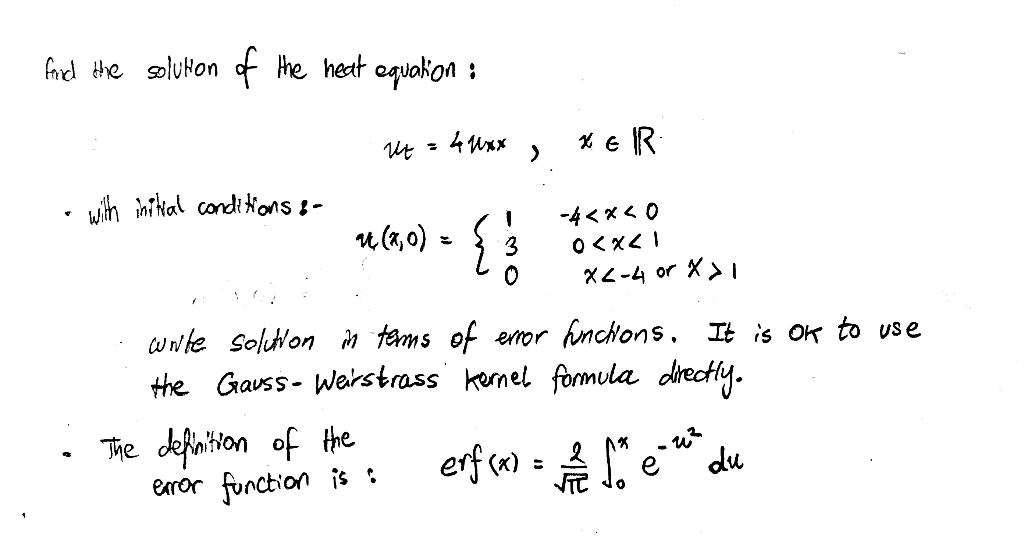 find the solution of the heat equation :
ut = 4 uxx , x ∈ ℝ
• with initial conditions :-
u(x,0) = { 1 -4<x<0
3 0<x<1
0 x<-4 or x>1
write solution in terms of error functions. It is OK to use
the Gauss-Weirstrass kernel formula directly.
• The definition of the
error function is : erf(x) = 2/√π ∫₀ˣ e^-u² du